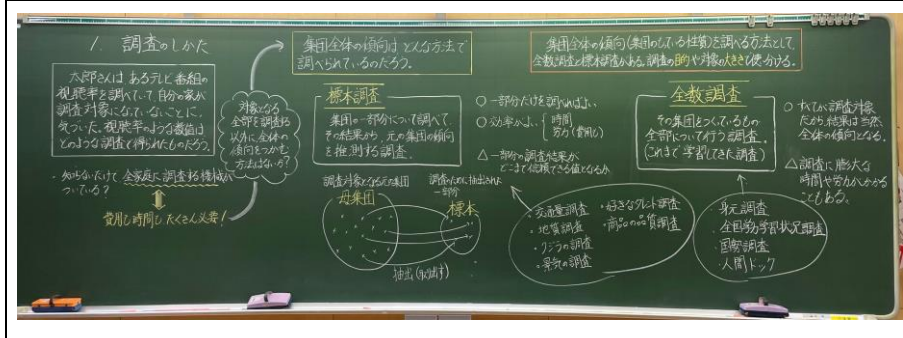 1. 調査のしかた
太郎さんは あるテレビ番組の
視聴率を調べていて、自分の家が
調査対象になっていないことに
気づいた。視聴率のような数値は
どのような調査で得られたものだろう。
・知らないだけで 全家庭に調査する機械が
ついている?
費用も時間もたくさん必要!
対象となる
全部を調査する
以外に、全体の
傾向をつかむ
方法はない?
集団全体の傾向は どんな方法で
調べられているのだろう。
標本調査
集団の一部分について調べて、
その結果から、元の集団の傾向
を推測する調査
調査対象となる元の集団
母集団
調査のために抽出された
一部分
標本
抽出(取り出す)
○一部分だけを調べればよい
○効率がよい
時間
労力(費用も)
△一部分の調査結果が
どこまで信頼できる値となるか
・交通量調査
・地質調査
・クジラの調査
・景気の調査
・好きなタレント調査
・商品の品質調査
集団全体の傾向(集団のもっている性質)を調べる方法として、
全数調査と標本調査がある。調査の目的や対象の大きさで使い分ける。
全数調査
その集団をつくっているもの
全部について行う調査
(これまで学習してきた調査)
○すべてが調査対象
だから、結果は当然、
全体の傾向となる。
△調査に膨大な
時間や労力がかかる
こともある。
・身元調査
・全国学力学習状況調査
・国勢調査
・人間ドック